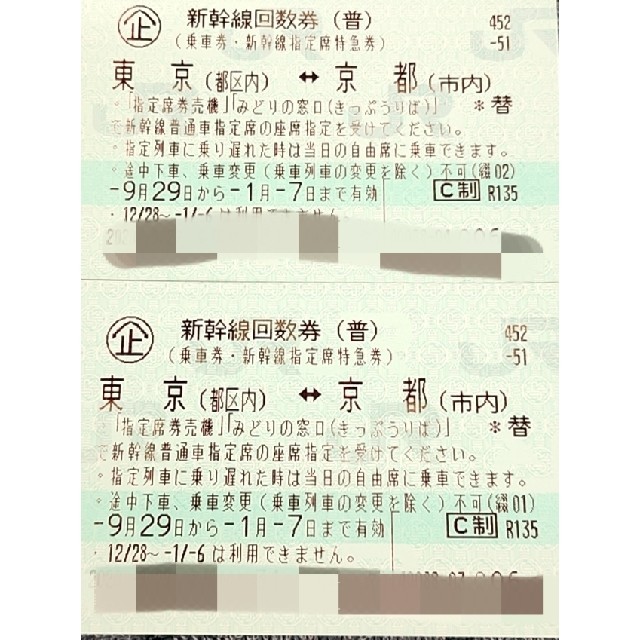 企 新幹線回数券（普） 452
（乗車券・新幹線指定席特急券） -51
東 京（都区内） ↔ 京 都（市内）
・「指定席券売機」「みどりの窓口（きっぷうりば）」 ＊替
で新幹線普通車指定席の座席指定を受けてください。
・指定列車に乗り遅れた時は当日の自由席に乗車できます。
・途中下車、乗車変更（乗車列車の変更を除く）不可(綴02)
-9月29日から-1月-7日まで有効 C制 R135
・12/28～-1/-6は利用できません
企 新幹線回数券（普） 452
（乗車券・新幹線指定席特急券） -51
東 京（都区内） ↔ 京 都（市内）
・「指定席券売機」「みどりの窓口（きっぷうりば）」 ＊替
で新幹線普通車指定席の座席指定を受けてください。
・指定列車に乗り遅れた時は当日の自由席に乗車できます。
・途中下車、乗車変更（乗車列車の変更を除く）不可(綴01)
-9月29日から-1月-7日まで有効 C制 R135
・12/28～-1/-6は利用できません。